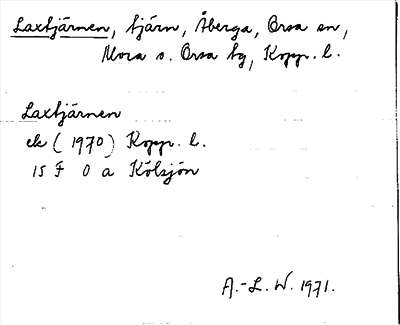 Laxtjärnen, tjärn, Åberga, Orsa sn,
Mora o. Orsa tg, Kopp. l.
Laxtjärnen
ek (1970) Kopp. l.
15 F 0 a Kölsjön
A.-L. W. 1971.